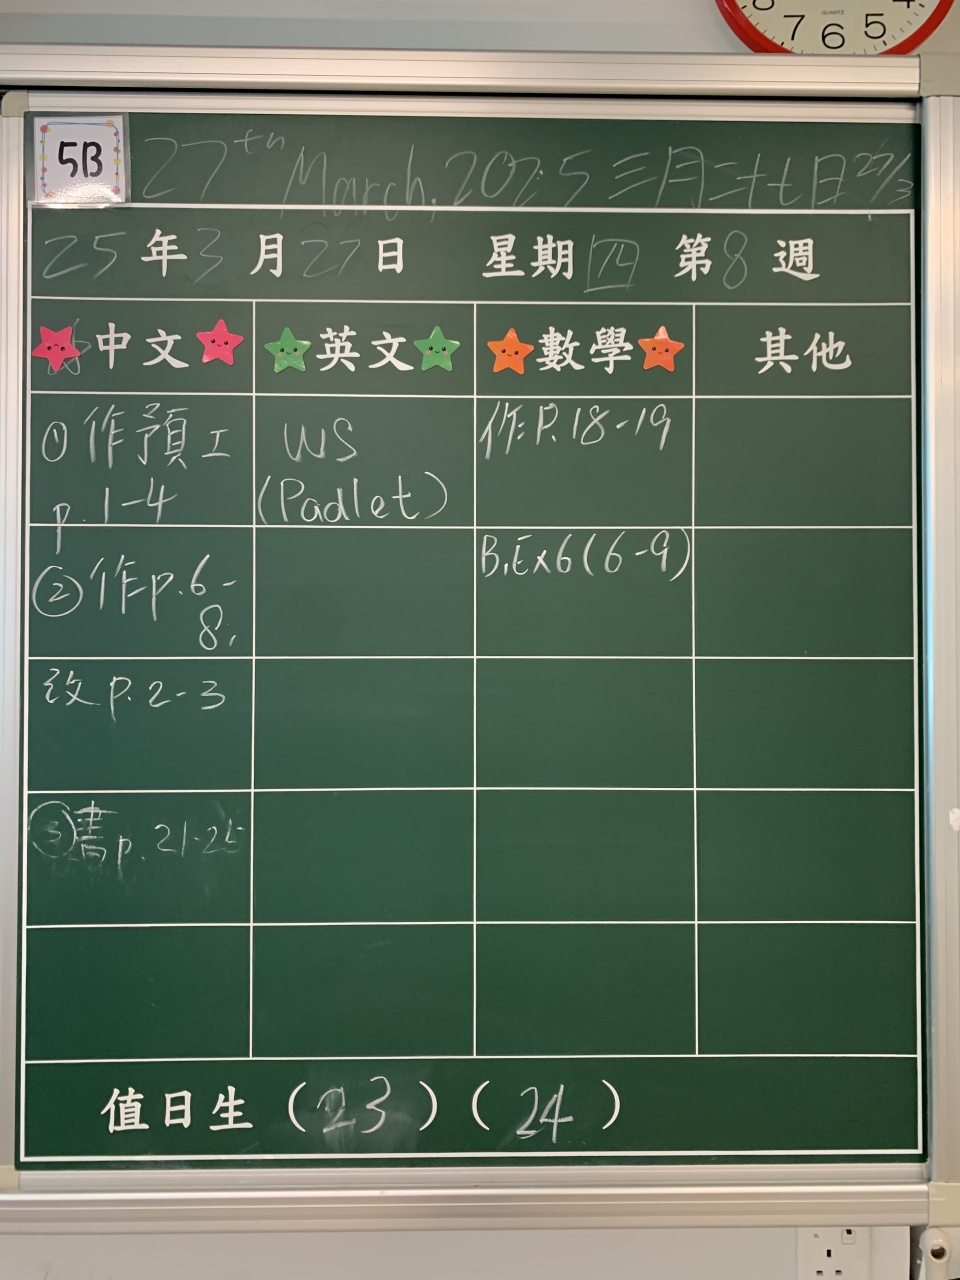 8 7 6 5 4
QUARTZ
5B
27th March, 2025 三月二十七日 27/3
25年3月27日 星期四 第8週
中文 英文 數學 其他
①作預工 WS 作P.18-19
p.1-4 (Padlet)
②作p.6- B.Ex6(6-9)
8,
改p.2-3
③書p.21-25
值日生(23)(24)